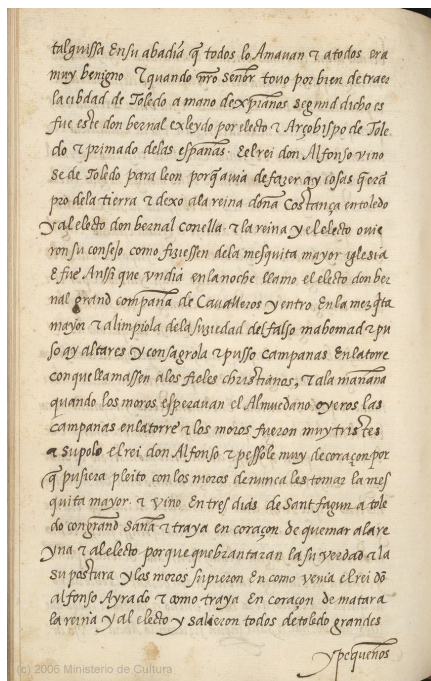 talguissa En su abadia q̃ todos lo Amauan τ atodos era
muy benigno τ quando nr̃o señor touo por bien de traer
la cibdad de Toledo a mano de xp̃ianos segund dicho es
fue este don bernal exleydo por electo τ Arçobispo de Tole
do τ primado delas españas. E el rei don Alfonso vino
se de Toledo para leon porq̃ auia de fazer ay cosas q̃ erã
pro dela tierra τ dexo ala reina doña Costança en toledo
y al electo don bernal Conella. τ la reina y el electo ouie
ron su consejo como fiziessen dela mesquita mayor yglesia
E fue Anssi que vn dia en la noche llamo el electo don ber
nal grand compaña de Caualleros y entro En la mezq̃ta
mayor τ alimpiola dela suziedad del falso mahomad τ pu
so ay altares y consagrola τ pusso campanas En la torre
con que llamassen alos fieles christianos, τ ala mañana
quando los moros esperauan el Almuedano oyeros las
campanas en la torre τ los moros fueron muy tristes
a supolo el rei don Alfonso τ pessole muy de coraçon por
q̃ pusiera pleito con los moros de nunca les tomar la mes
quita mayor. τ vino En tres dias de Sant fagun a tole
do con grand saña τ traya en coraçon de quemar ala re
yna τ al electo porque quebrantaran la su verdad τ la
su postura y los moros supieron En como venia el rei dõ
alfonso Ayrado τ como traya En coraçon de matar a
la reina y al electo y salieron todos de toledo grandes
y pequeños
(c) 2006 Ministerio de Cultura